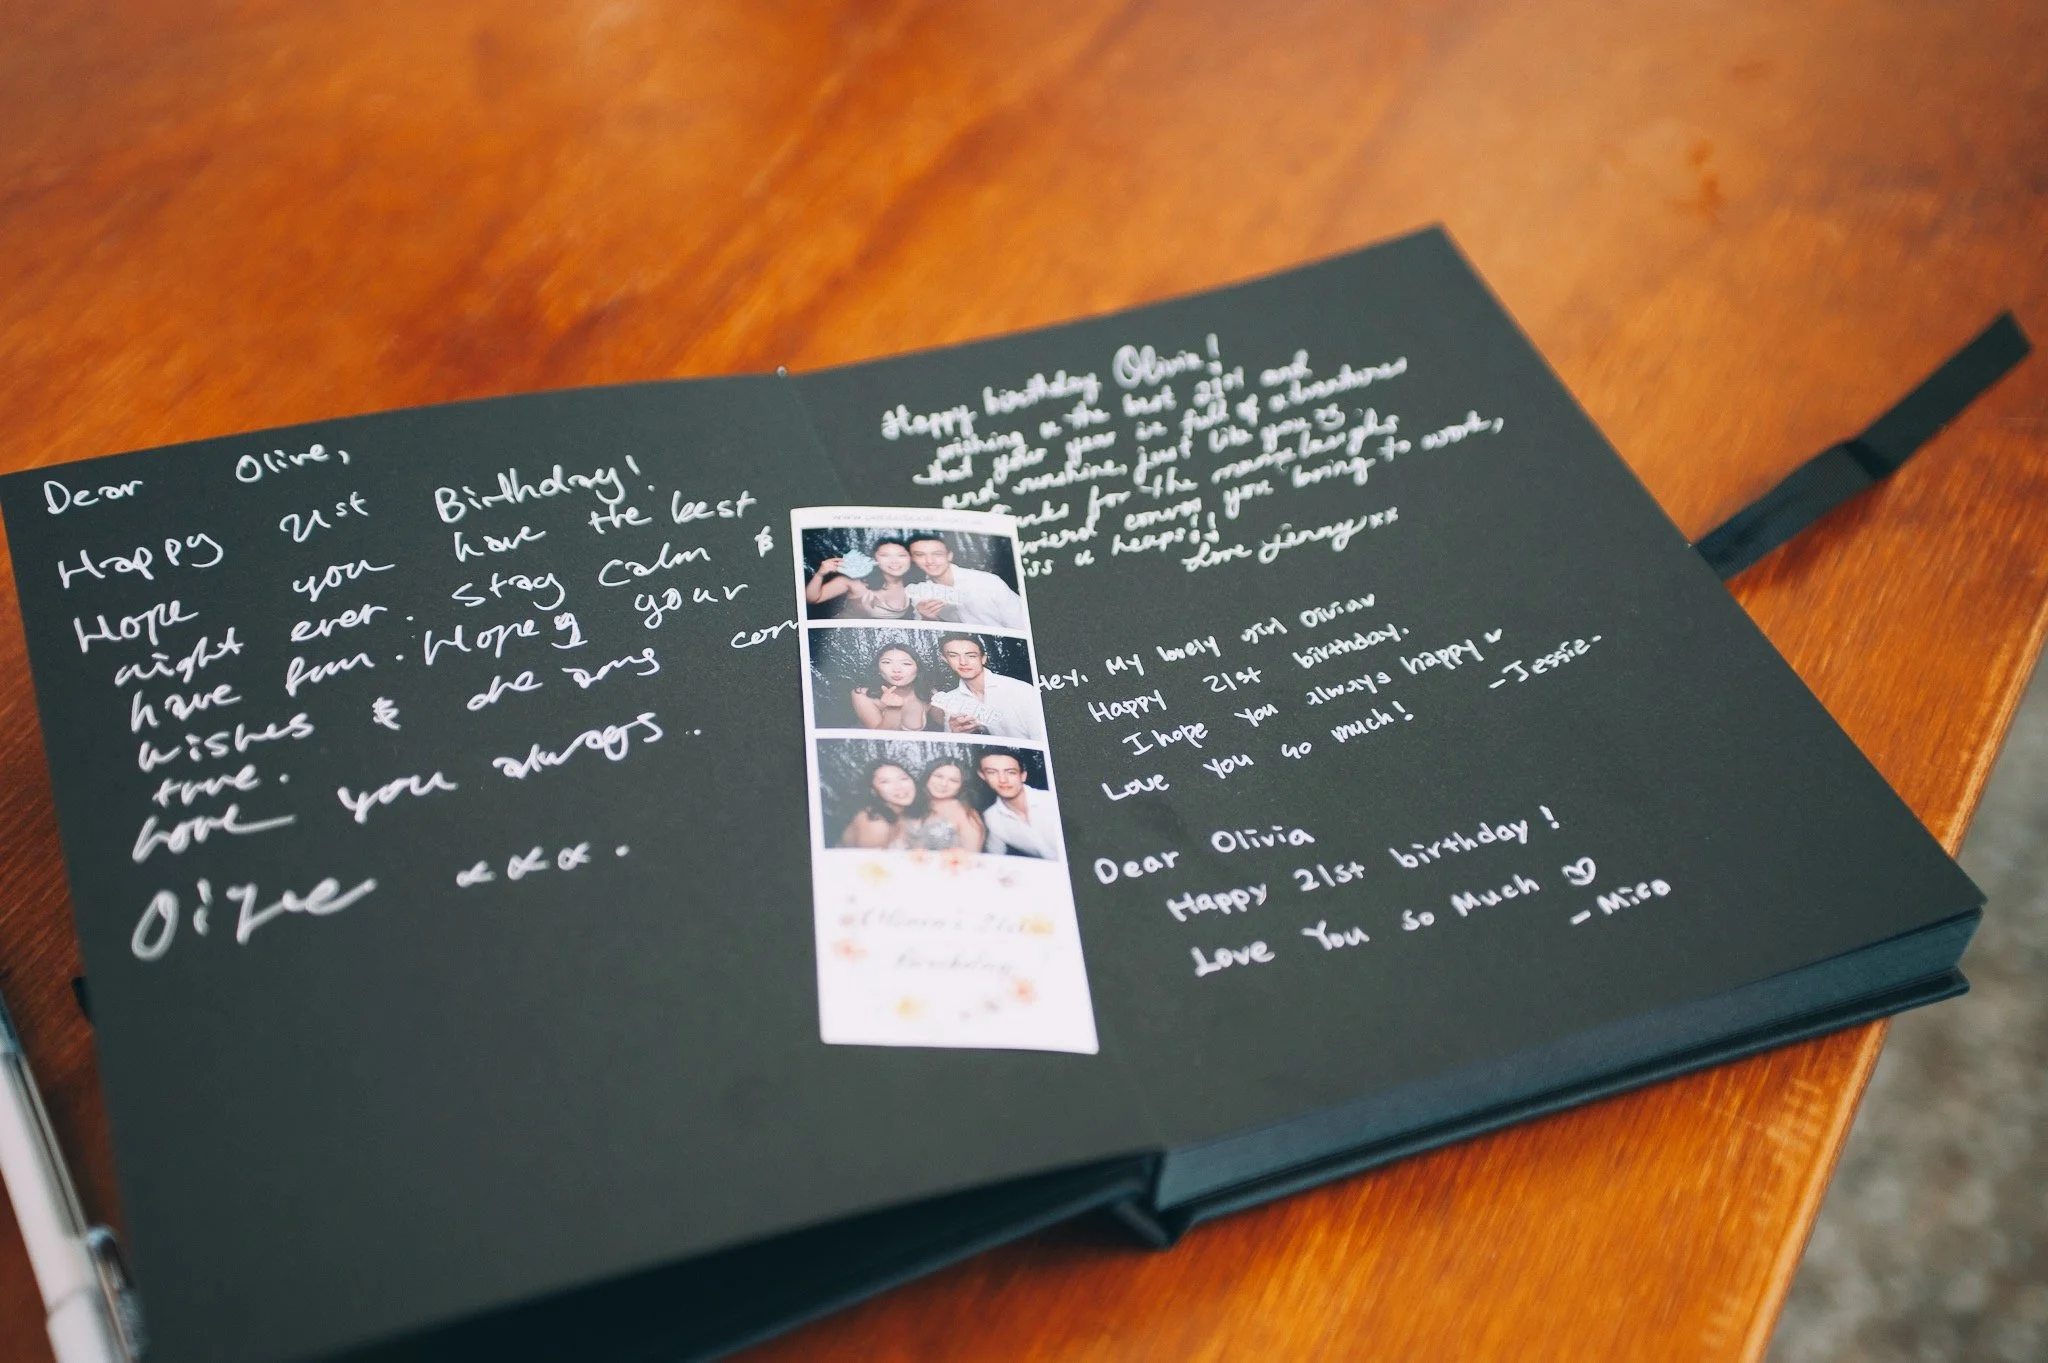 Dear Olive,
Happy 21st Birthday!
Hope you have the best
night ever. Stay calm &
have fun. Hope your
wishes & dreams com
true.
Love you always.
xxx.
Happy birthday Olivia!
wishing u the best 21st and
that your year is full of adventures
and sunshine, just like you
for the laughs
convos you bring to work,
miss u heaps!!
Love Jenny xx
Hey, My lovely girl Olivia
Happy 21st birthday.
I hope you always happy
Love you so much!
-Jessie-
Dear Olivia
Happy 21st birthday!
Love You so Much ♡
- Mico
21st
Birthday